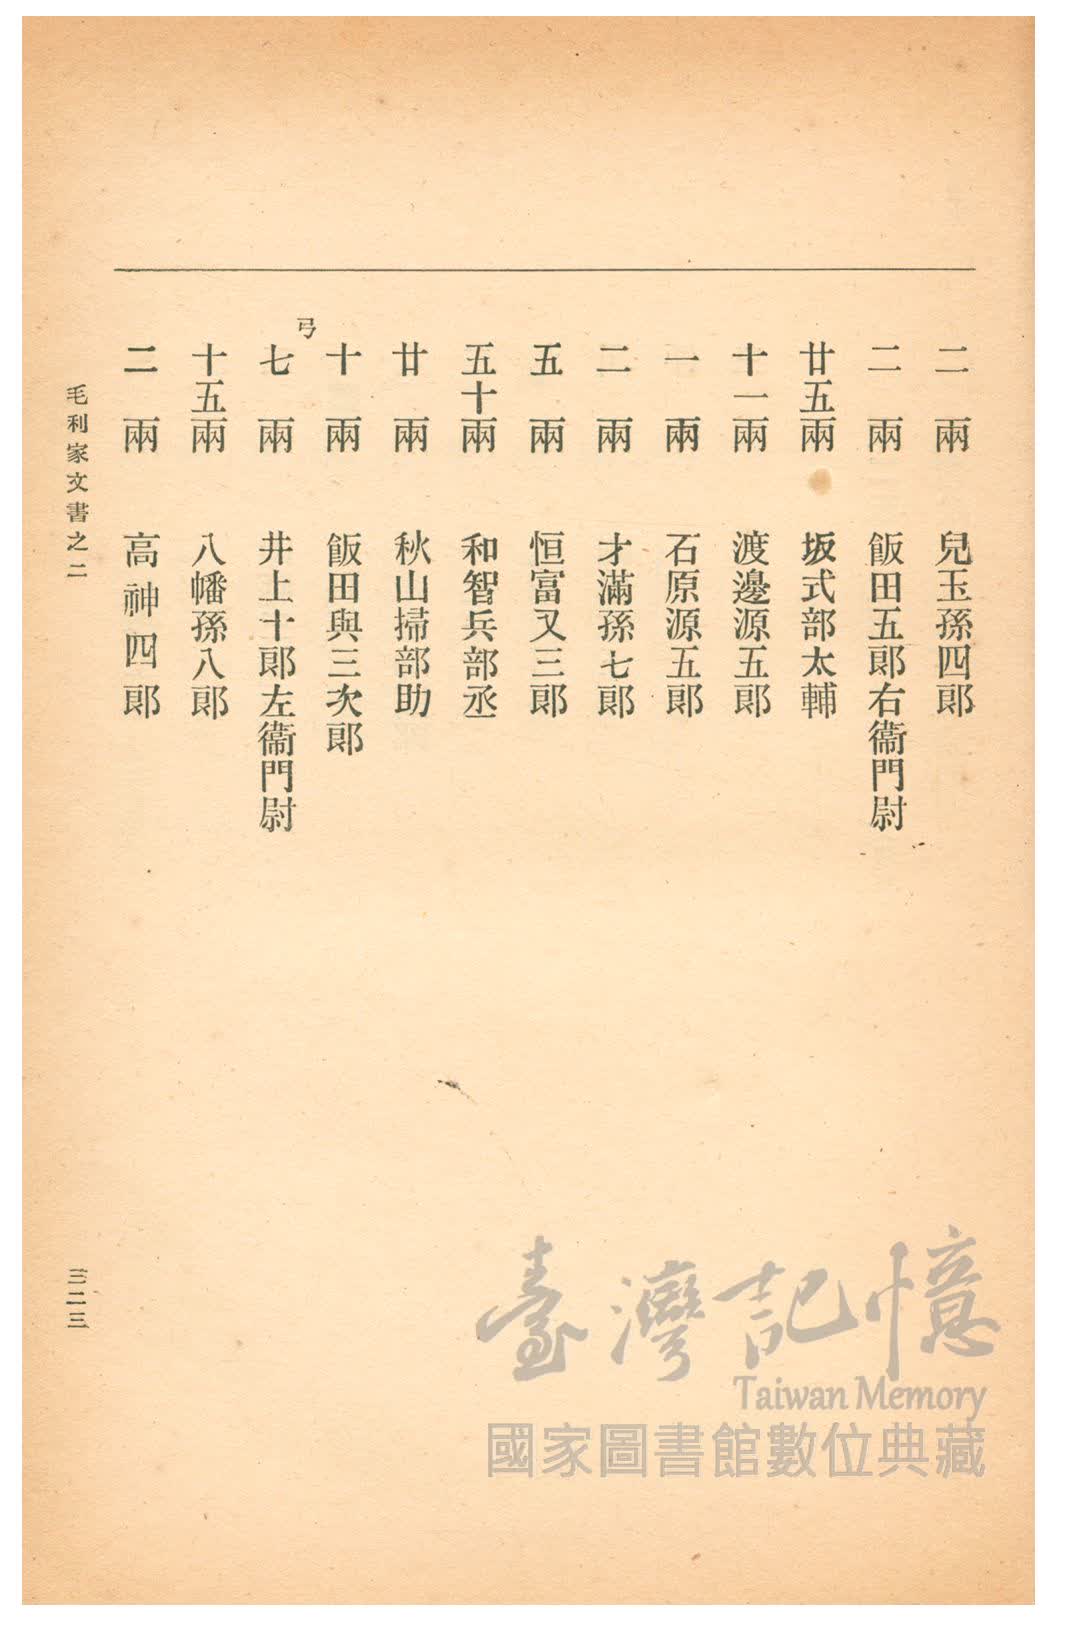 二兩　兒玉孫四郎
二兩　飯田五郎右衞門尉
廿五兩　坂式部太輔
十一兩　渡邊源五郎
一兩　石原源五郎
二兩　才滿孫七郎
五兩　恒富又三郎
五十兩　和智兵部丞
廿兩　秋山掃部助
十兩　飯田與三次郎
弓
七兩　井上十郎左衞門尉
十五兩　八幡孫八郎
二兩　高神四郎
毛利家文書之二
三二三
臺灣記憶
Taiwan Memory
國家圖書館數位典藏